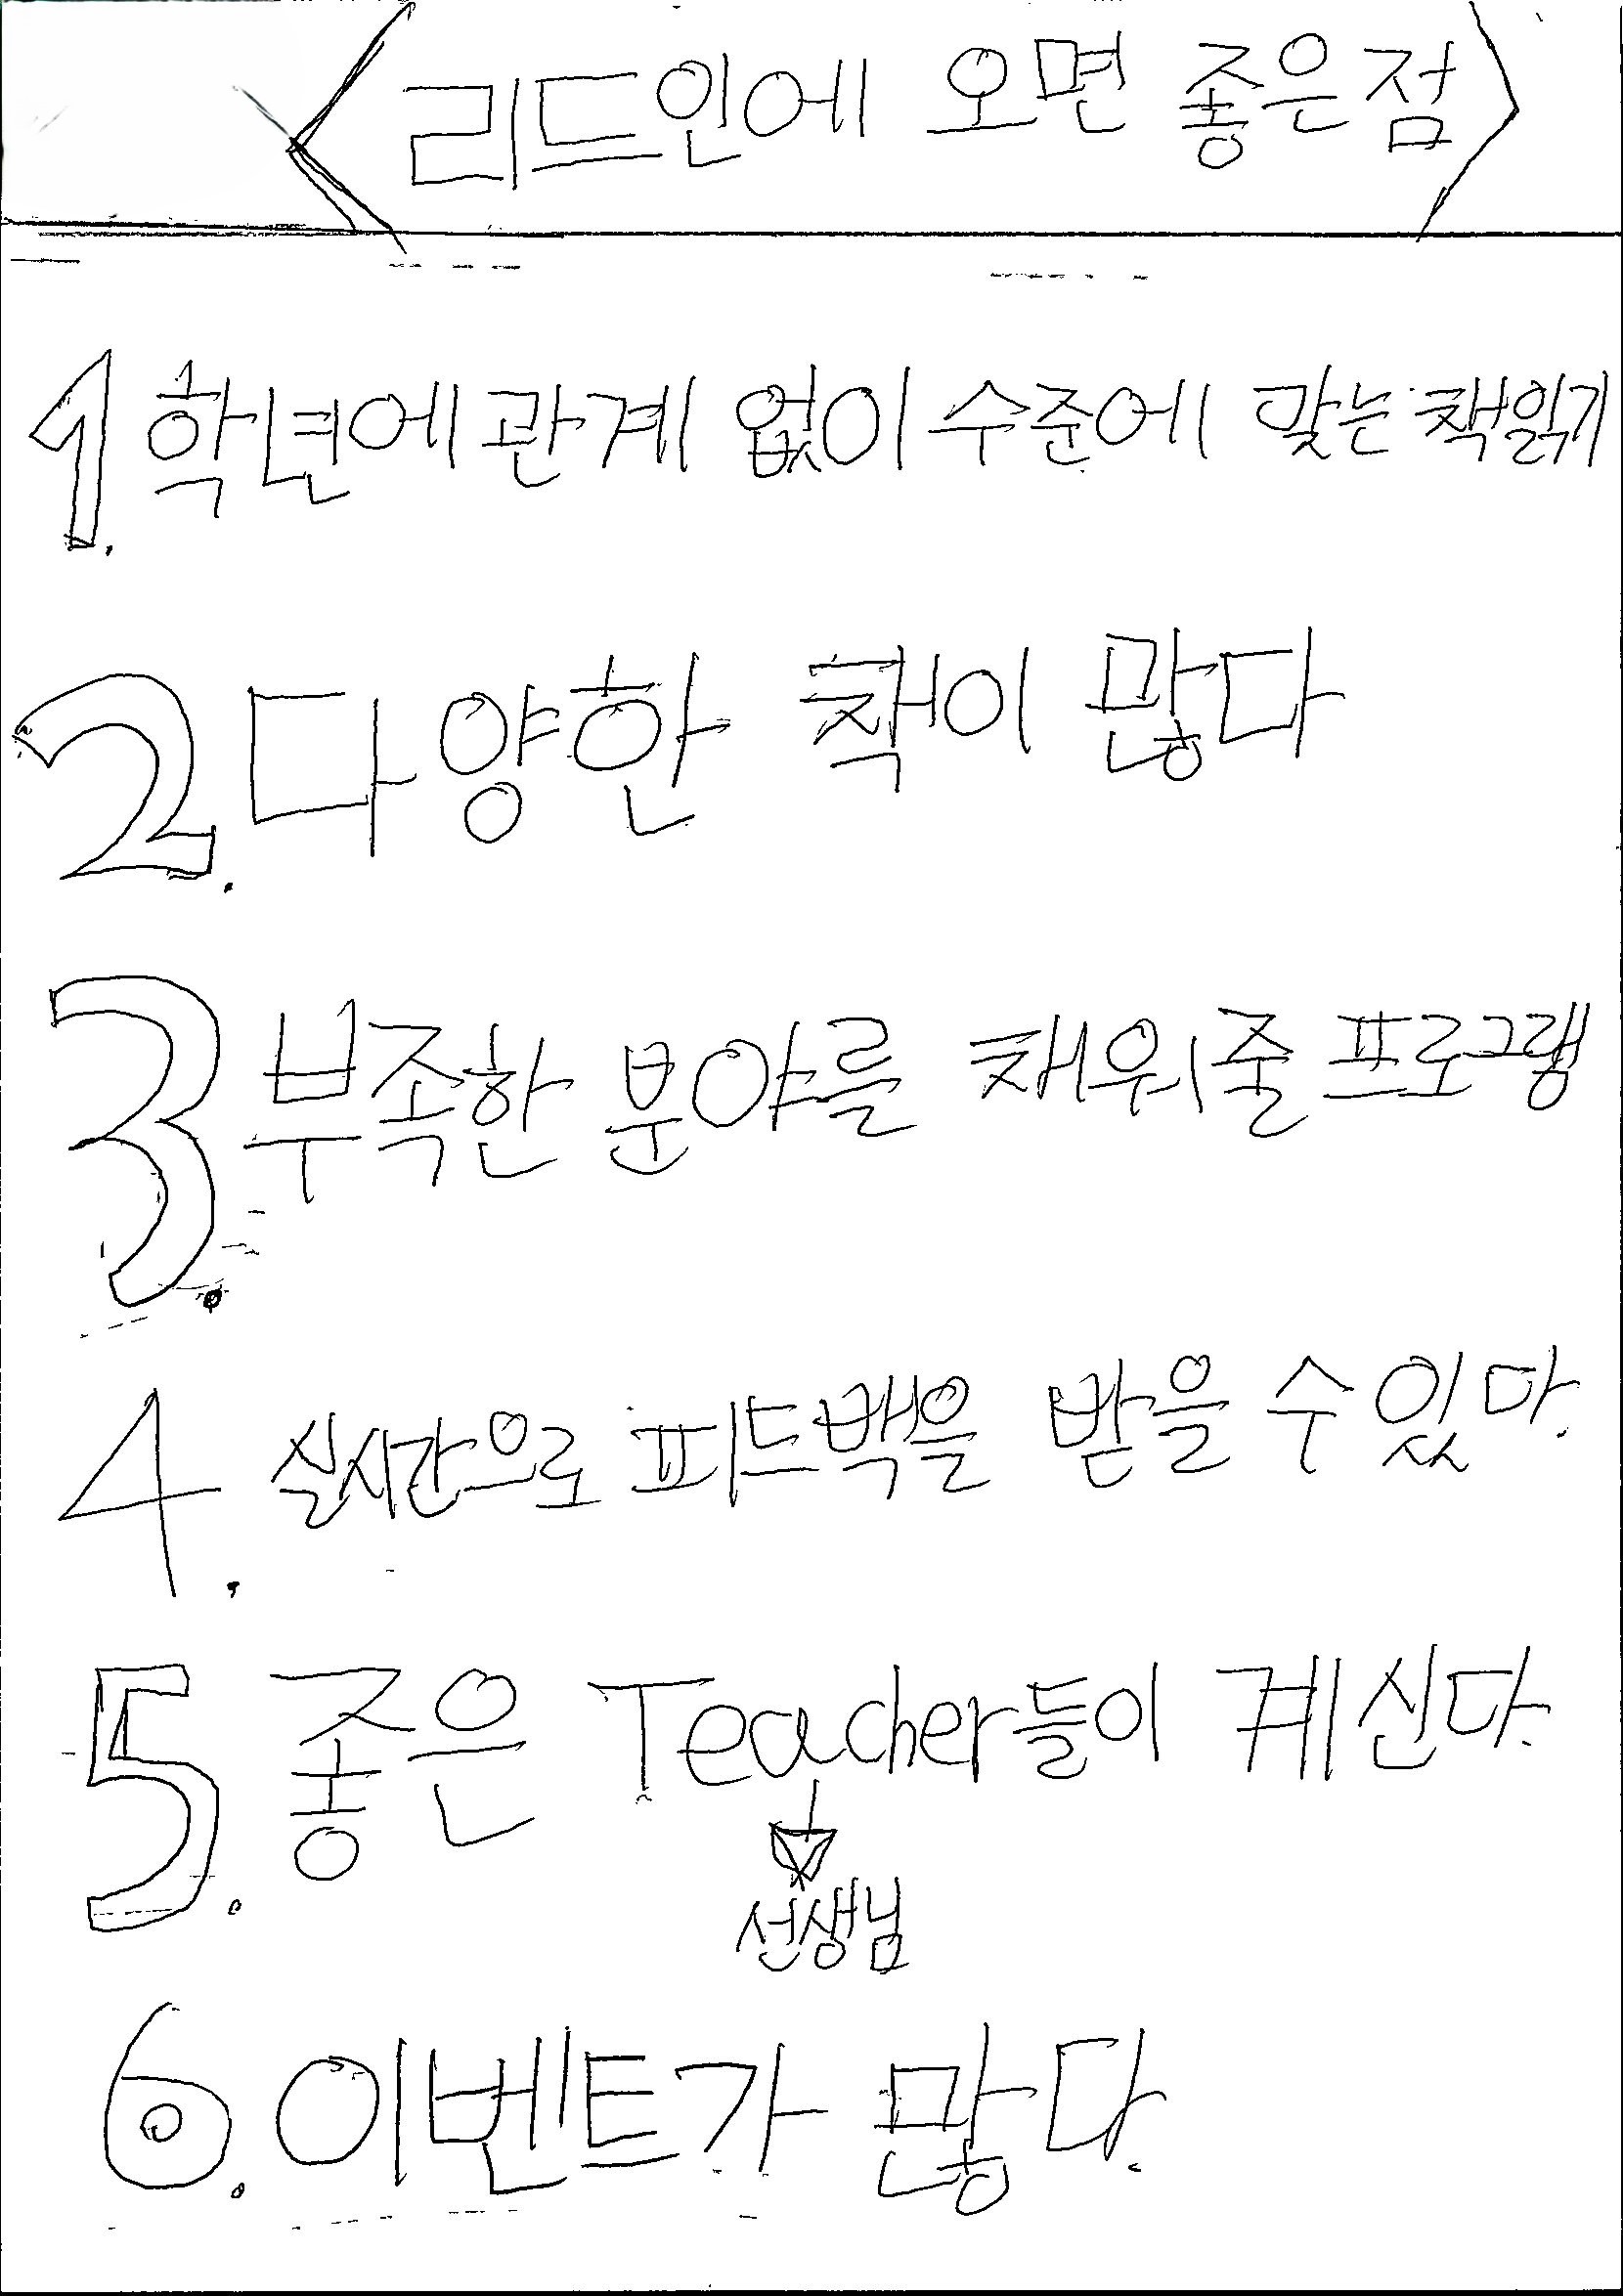 <리드인에 오면 좋은점>
1. 학년에 관계 없이 수준에 맞는 책읽기
2. 다양한 책이 많다
3. 부족한 분야를 채워줄 프로그램
4. 실시간으로 피드백을 받을 수 있다.
5. 좋은 Teacher들이 계신다.
선생님
6. 이벤트가 많다.